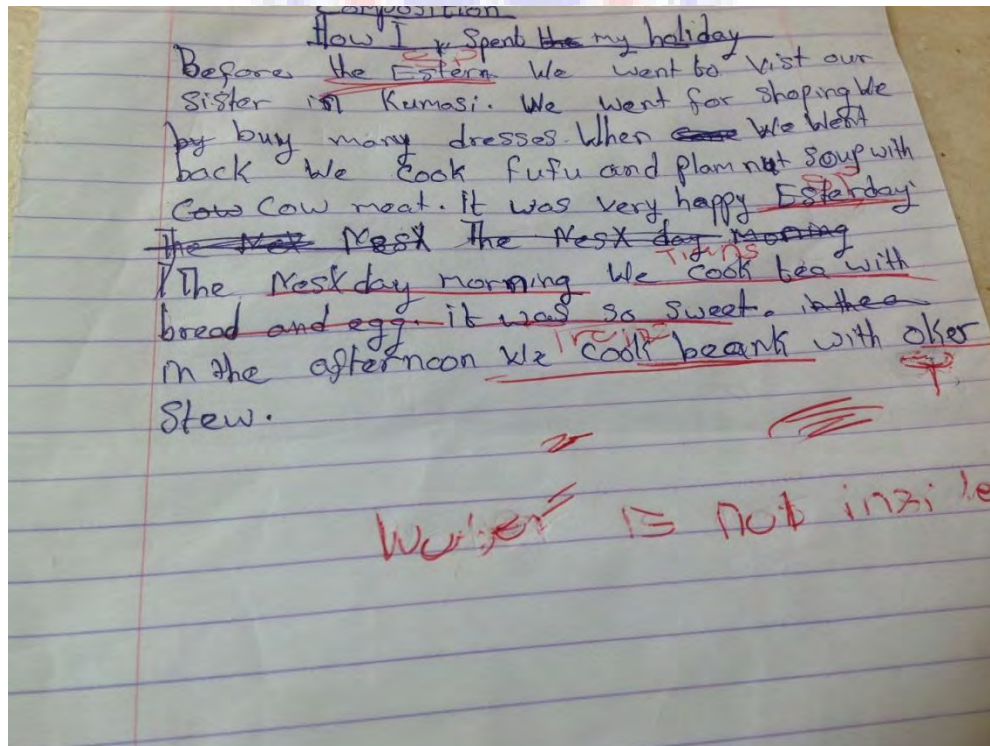 Composition
How I Spent the my holiday
Before the Estern We went to Vist our
Sister in Kumasi. We went for shoping We
by buy many dresses. When We Went
back We Cook fufu and Plamnut Soup with
Cow Cow meat. it was very happy Esterday
The Nex Nesx The Nesx day Morning
The Nesx day morning We Cook tea with
bread and egg. it was so sweet. in the a
in the afternoon We Cook beank with oker
Stew.
is not